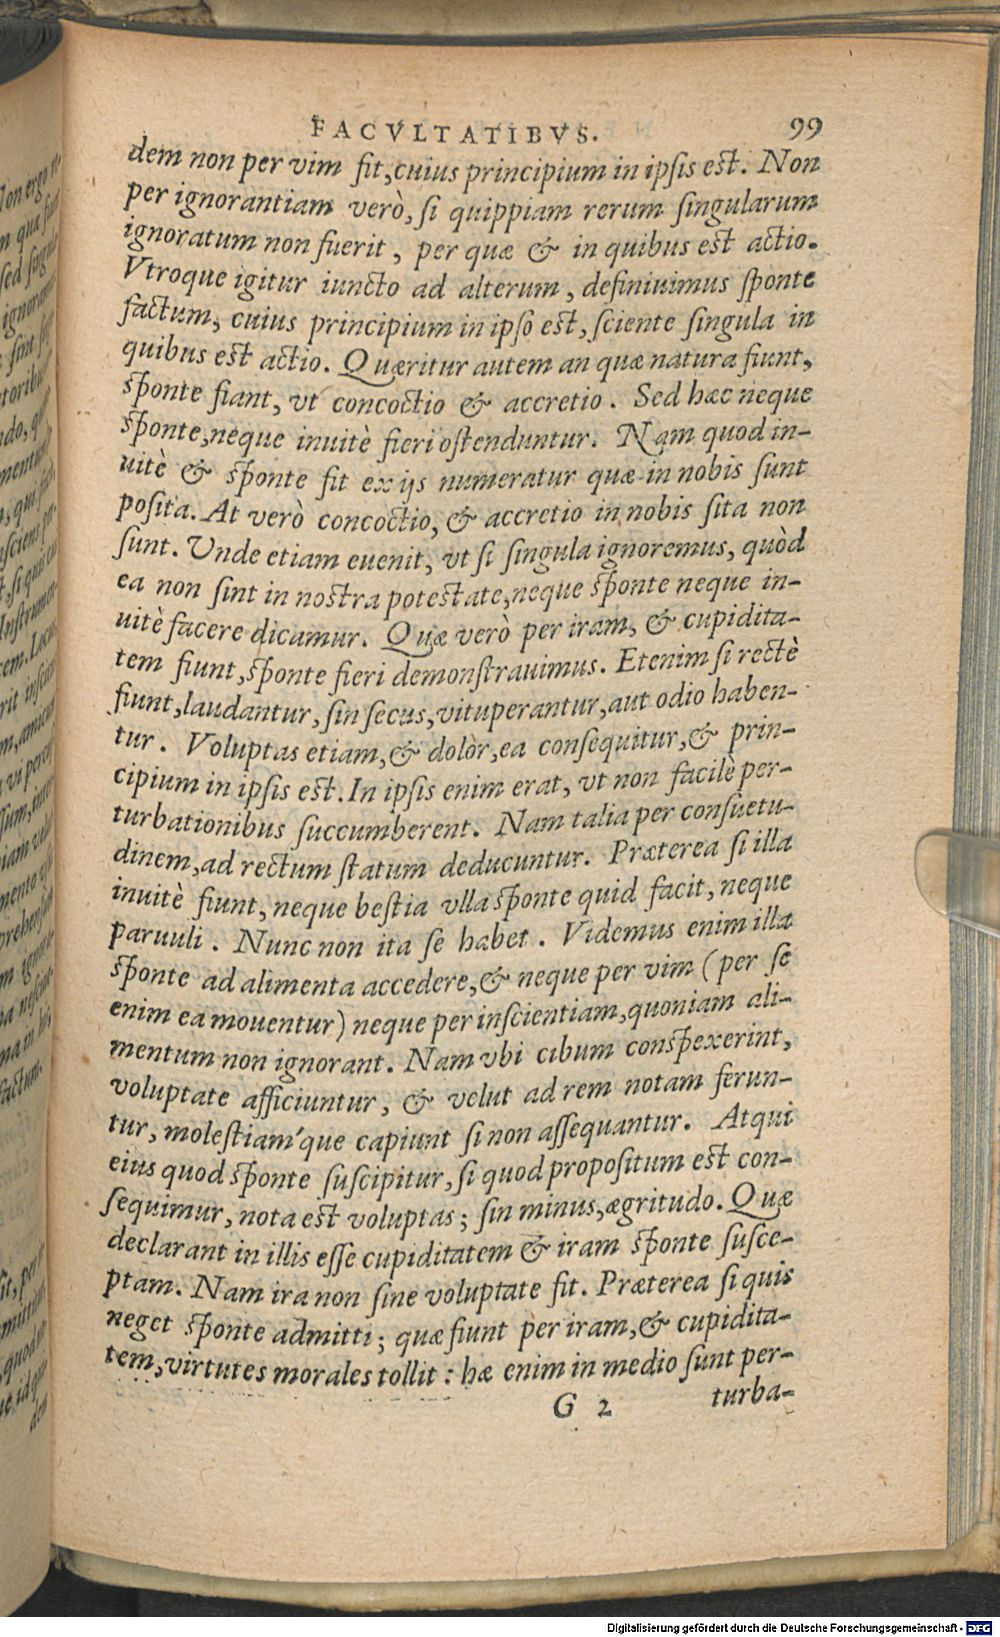 FACVLTATIBVS. 99
dem non per vim fit, cuius principium in ipsis est. Non
per ignorantiam verò, si quippiam rerum singularum
ignoratum non fuerit, per quæ & in quibus est actio.
Vtroque igitur iuncto ad alterum, definiuimus sponte
factum, cuius principium in ipso est, sciente singula in
quibus est actio. Quæritur autem an quæ natura fiunt,
sponte fiant, vt concoctio & accretio. Sed hæc neque
sponte, neque inuitè fieri ostenduntur. Nam quod in-
uitè & sponte fit ex ijs numeratur quæ in nobis sunt
posita. At verò concoctio, & accretio in nobis sita non
sunt. Unde etiam euenit, vt si singula ignoremus, quòd
ea non sint in nostra potestate, neque sponte neque in-
uitè facere dicamur. Quæ verò per iram, & cupidita-
tem fiunt, sponte fieri demonstrauimus. Etenim si rectè
fiunt, laudantur, sin secus, vituperantur, aut odio haben-
tur. Voluptas etiam, & dolòr, ea consequitur, & prin-
cipium in ipsis est. In ipsis enim erat, vt non facilè per-
turbationibus succumberent. Nam talia per consuetu-
dinem, ad rectum statum deducuntur. Præterea si illa
inuitè fiunt, neque bestia vlla sponte quid facit, neque
paruuli. Nunc non ita se habet. Videmus enim illa
sponte ad alimenta accedere, & neque per vim (per se
enim ea mouentur) neque per inscientiam, quoniam ali-
mentum non ignorant. Nam vbi cibum conspexerint,
voluptate afficiuntur, & velut ad rem notam ferun-
tur, molestiam'que capiunt si non assequantur. Atqui
eius quod sponte suscipitur, si quod propositum est con-
sequimur, nota est voluptas; sin minus, ægritudo. Quæ
declarant in illis esse cupiditatem & iram sponte susce-
ptam. Nam ira non sine voluptate fit. Præterea si quis
neget sponte admitti; quæ fiunt per iram, & cupidita-
tem, virtutes morales tollit: hæ enim in medio sunt per-
G 2 turba-
Digitalisierung gefördert durch die Deutsche Forschungsgemeinschaft - DFG